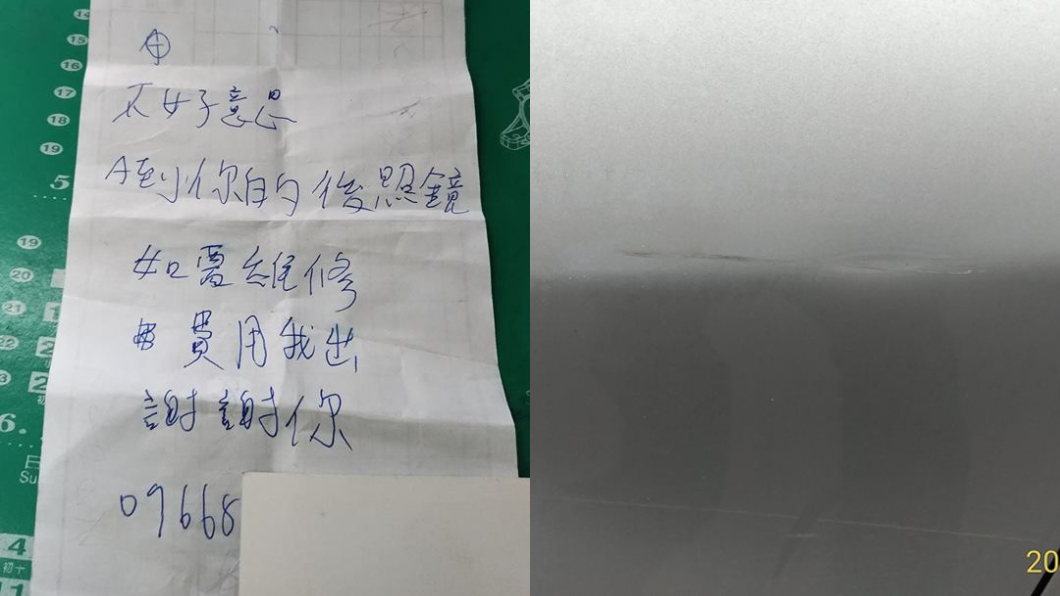 不好意思
A到你的後照鏡
如需維修
費用我出
謝謝你
09668
14
15
16
17
18
19
5
19
20
21
22
6.
日
Su
4
初十
11
20